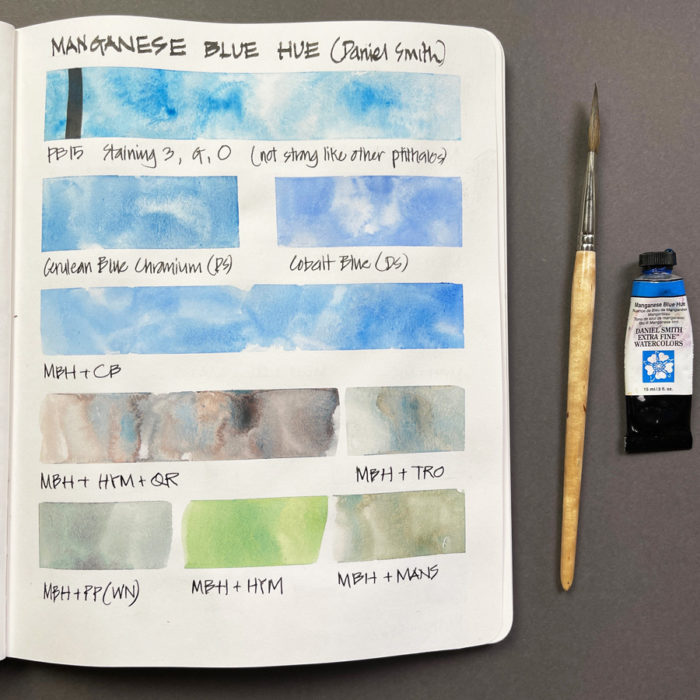 MANGANESE BLUE HUE (Daniel Smith)
PB15 Staining 3, G, O (not strong like other phthalos)
Cerulean Blue Chromium (DS)
Cobalt Blue (DS)
MBH + CB
MBH + HYM + QR
MBH + TRO
MBH + PP (WN)
MBH + HYM
MBH + MANS
Manganese Blue Hue
DANIEL SMITH
EXTRA FINE™
WATERCOLORS